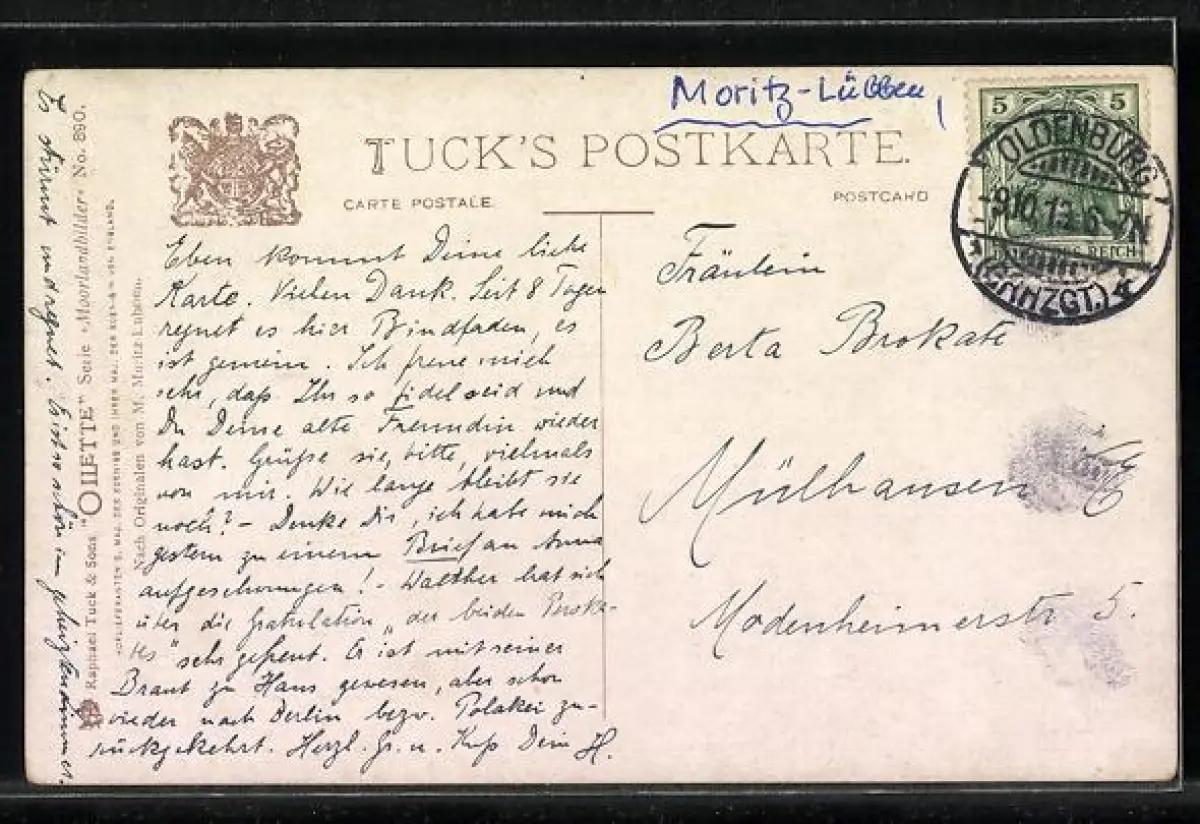 Moritz-Lübben,
TUCK'S POSTKARTE.
CARTE POSTALE.
POSTCARD
5 5
REICH
OLDENBURG
-9.10.13.6-7N
(GRHZGT.)
Fräulein
Berta Brokate
Mülhausen
Modenheimerstr 5.
Eben kommt Deine liebe
Karte. Vielen Dank. Seit 8 Tagen
regnet es hier Bindfaden, es
ist gemein. Ich freue mich
sehr, daß Ihr so fidel seid und
Du Deine alte Freundin wieder
hast. Grüße sie, bitte, vielmals
von mir. Wie lange bleibt sie
noch? – Denke Dir, ich habe mich
gestern zu einem Brief an Anna
aufgeschwungen! – Walther hat sich
über die Gratulation „der beiden Broka-
tes" sehr gefreut. Er ist mit seiner
Braut zu Haus gewesen, aber schon
wieder nach Berlin bezw. Polakei zu-
rückgekehrt. Herzl. Gr. u. Kuß Dein H.
Es stürmt und regnet. Es ist so schön im geheizten Zimmer.
Raphael Tuck & Sons "OILETTE" Serie »Moorlandbilder« No. 890.
HOFLIEFERANTEN S. MAJ. DES KÖNIGS UND IHRER MAJ. DER KÖNIGIN VON ENGLAND.
Nach Originalen von M. Moritz Lübben.